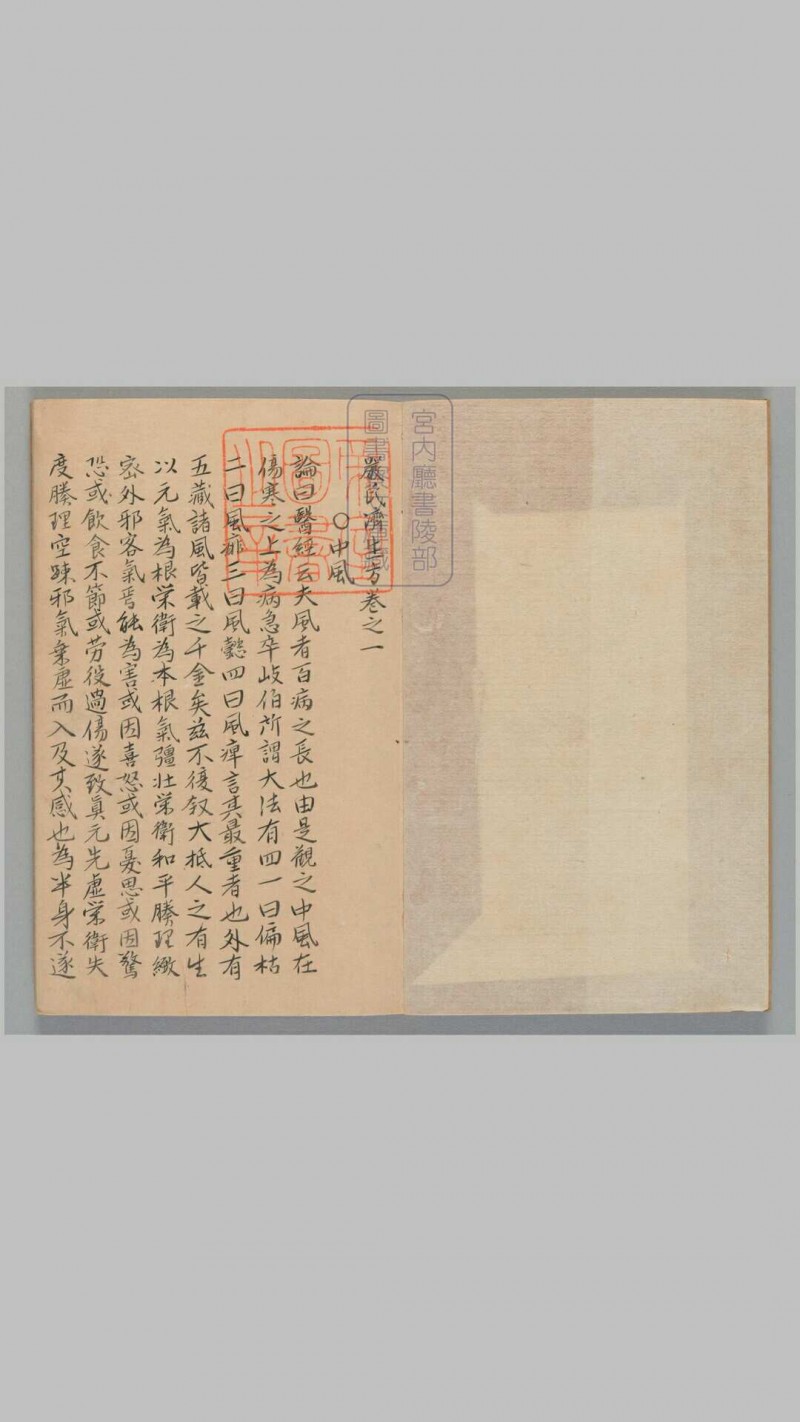 嚴氏濟生方卷之一
〇中風
論曰醫經云夫風者百病之長也由是觀之中風在
傷寒之上為病急卒岐伯所謂大法有四一曰偏枯
二曰風痱三曰風懿四曰風痺言其最重者也外有
五藏諸風皆載之千金矣茲不復叙大抵人之有生
以元氣為根榮衛為本根氣彊壯榮衛和平腠理緻
密外邪客氣焉能為害或因喜怒或因憂思或因驚
恐或飲食不節或劳役過傷遂致真元先虛榮衛失
度腠理空踈邪氣乗虛而入及其感也為半身不遂
宮内廳書陵部
圖書